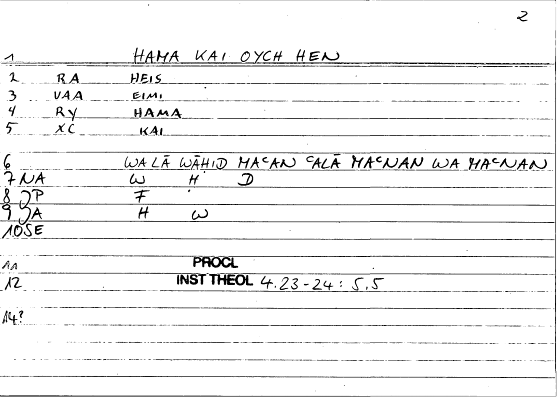 2
1 HAMA KAI OYCH HEN
2 RA HEIS
3 VAA EIMI
4 RY HAMA
5 XC KAI
6 WALĀ WĀḤID MAᶜAN ᶜALĀ MAᶜNAN WA MAᶜNAN
7 NA W Ḥ D
8 P F
9 A H W
10 SE
11 PROCL
12 INST THEOL 4.23-24 : 5.5
14?